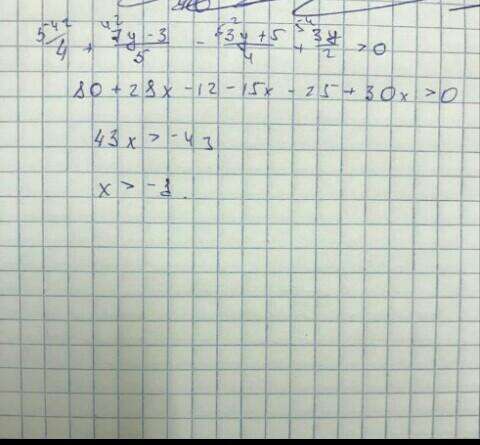 4 + 7y - 3 / 5 - 3y + 5 / 4 + 3y / 2 > 0
80 + 28x - 12 - 15x - 25 + 30x > 0
43x > -43
x > -1